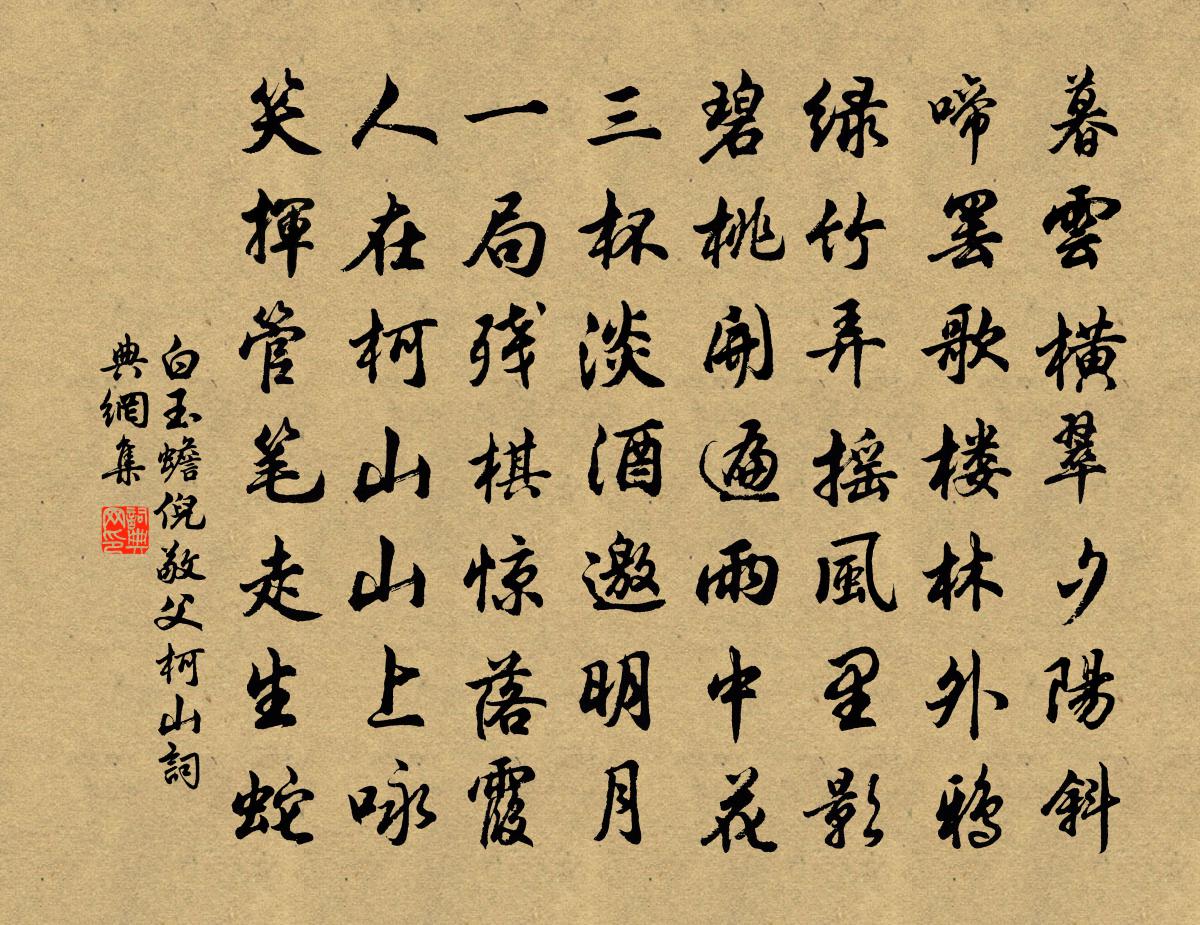 暮雲橫翠夕陽斜
啼罢歌楼林外鸦
绿竹弄摇風里影
碧桃開遍雨中花
三杯淡酒邀明月
一局残棋惊落霞
人在柯山山上咏
笑揮管笔走生蛇
白玉蟾倪敬父柯山詞
典網集
詞典网印